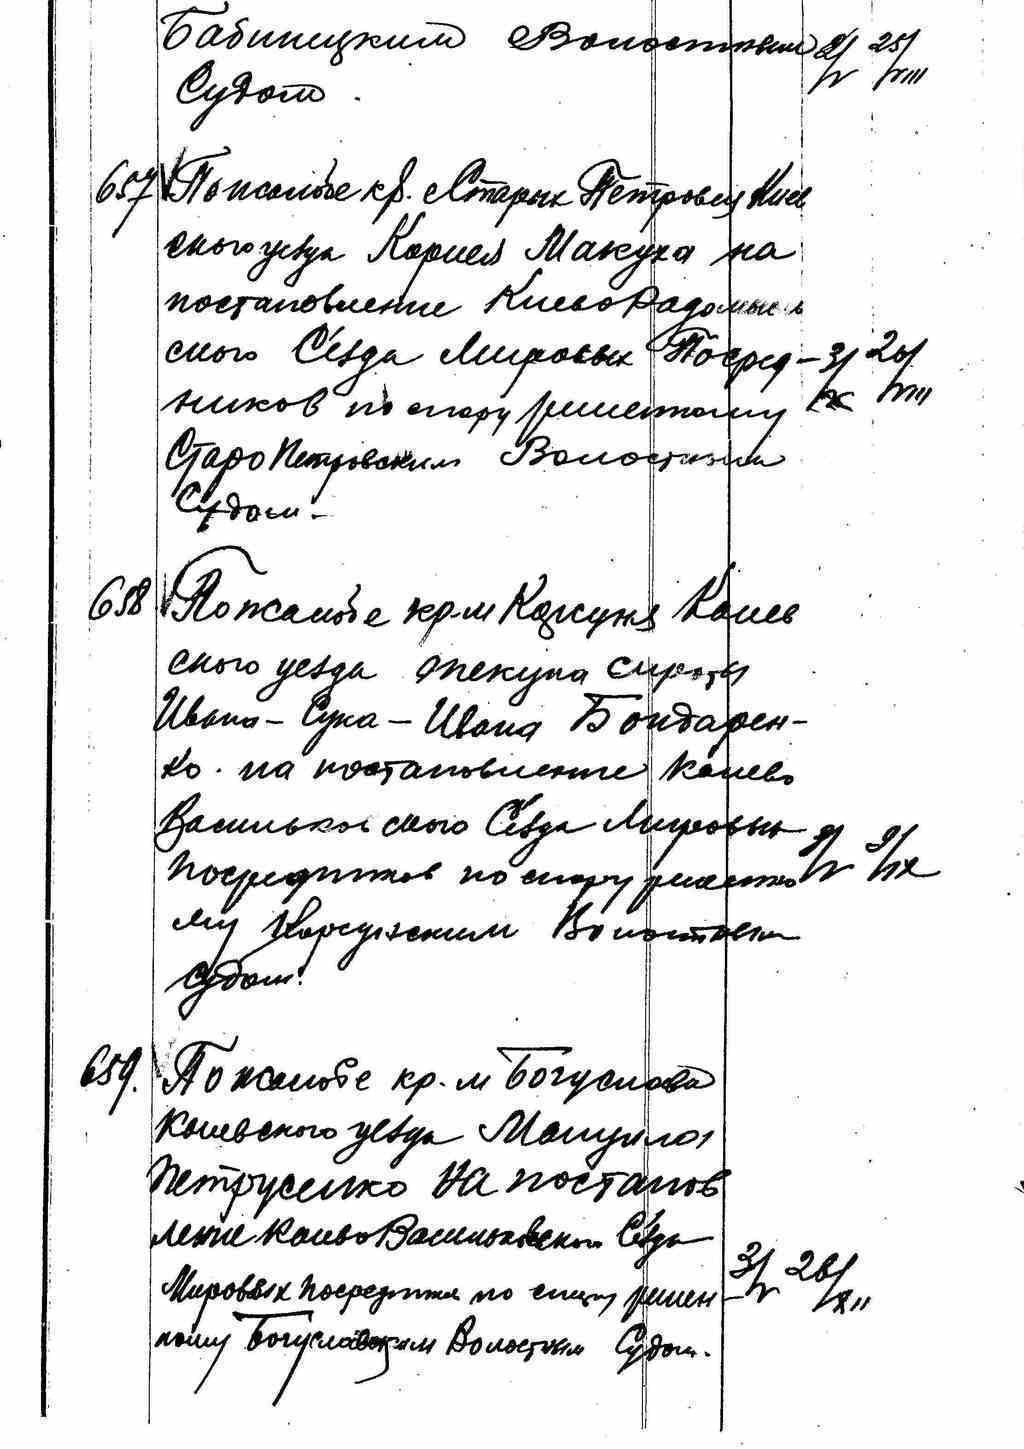 Бабинецким Волостным 2/V 25/VIII
Судом.
657 По жалобе кр. с. Старых Петровец Киев
ского уезда Корнея Макуха на
постановление Киево Радомысль
ского Съезда Мировых Посред- 3/IX 26/VIII
ников по спору решенному
Старо Петровским Волостным
Судом.-
658 По жалобе кр. м Канев
ского уезда опекуна сироты
Ивана - Сука - Ивана Бондарен-
ко. на постановление Канево
Васильковского Съезда Мировых
посредников по спору решенно 9/V 9/IX
му Корсунским Волостным
Судом.
659. По жалобе кр. м Богуслава
Каневского уезда Мануила
Петрусенко на постанов
ление Канево Васильковского Съезда
Мировых посредников по спору решен- 3/V 26/XII
ному Богуславским Волостным Судом.